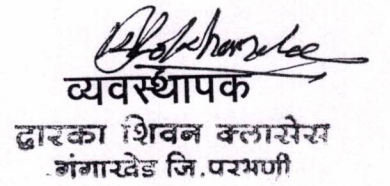 व्यवस्थापक
द्वारका शिवन क्लासेस
गंगाखेड जि.परभणी